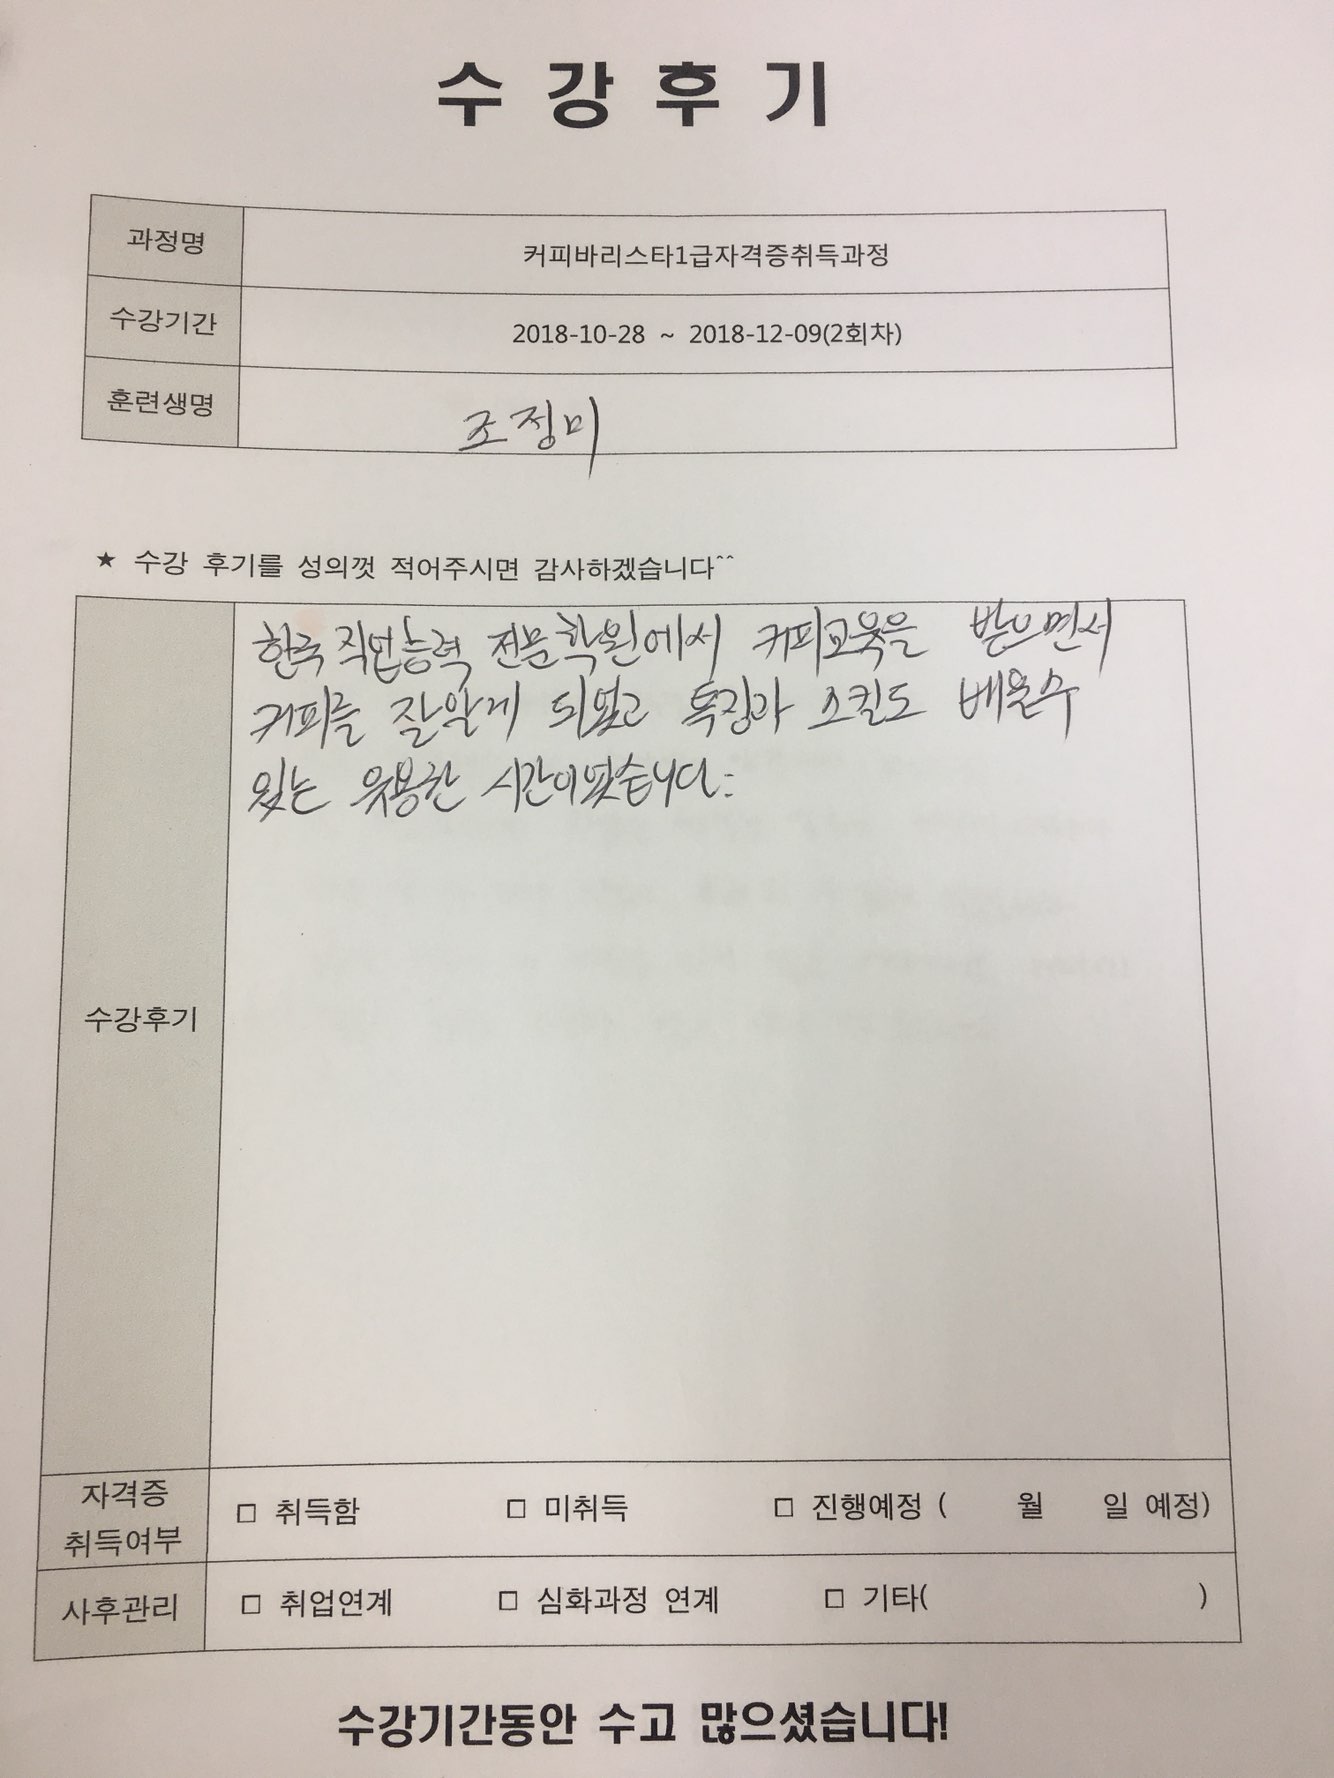 수 강 후 기
과정명 커피바리스타1급자격증취득과정
수강기간 2018-10-28 ~ 2018-12-09(2회차)
훈련생명 조정미
★ 수강 후기를 성의껏 적어주시면 감사하겠습니다^^
한국직업능력 전문학원에서 커피교육을 받으면서
커피를 잘알게 되었고 특징과 스킬도 배울수
있는 유용한 시간이었습니다.
수강후기
자격증
취득여부 □ 취득함 □ 미취득 □ 진행예정 ( 월 일 예정)
사후관리 □ 취업연계 □ 심화과정 연계 □ 기타( )
수강기간동안 수고 많으셨습니다!